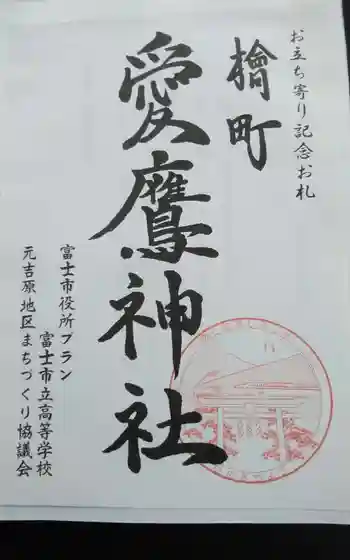 お立ち寄り記念お札
檜町
愛鷹神社
富士市役所プラン
富士市立高等学校
元吉原地区まちづくり協議会